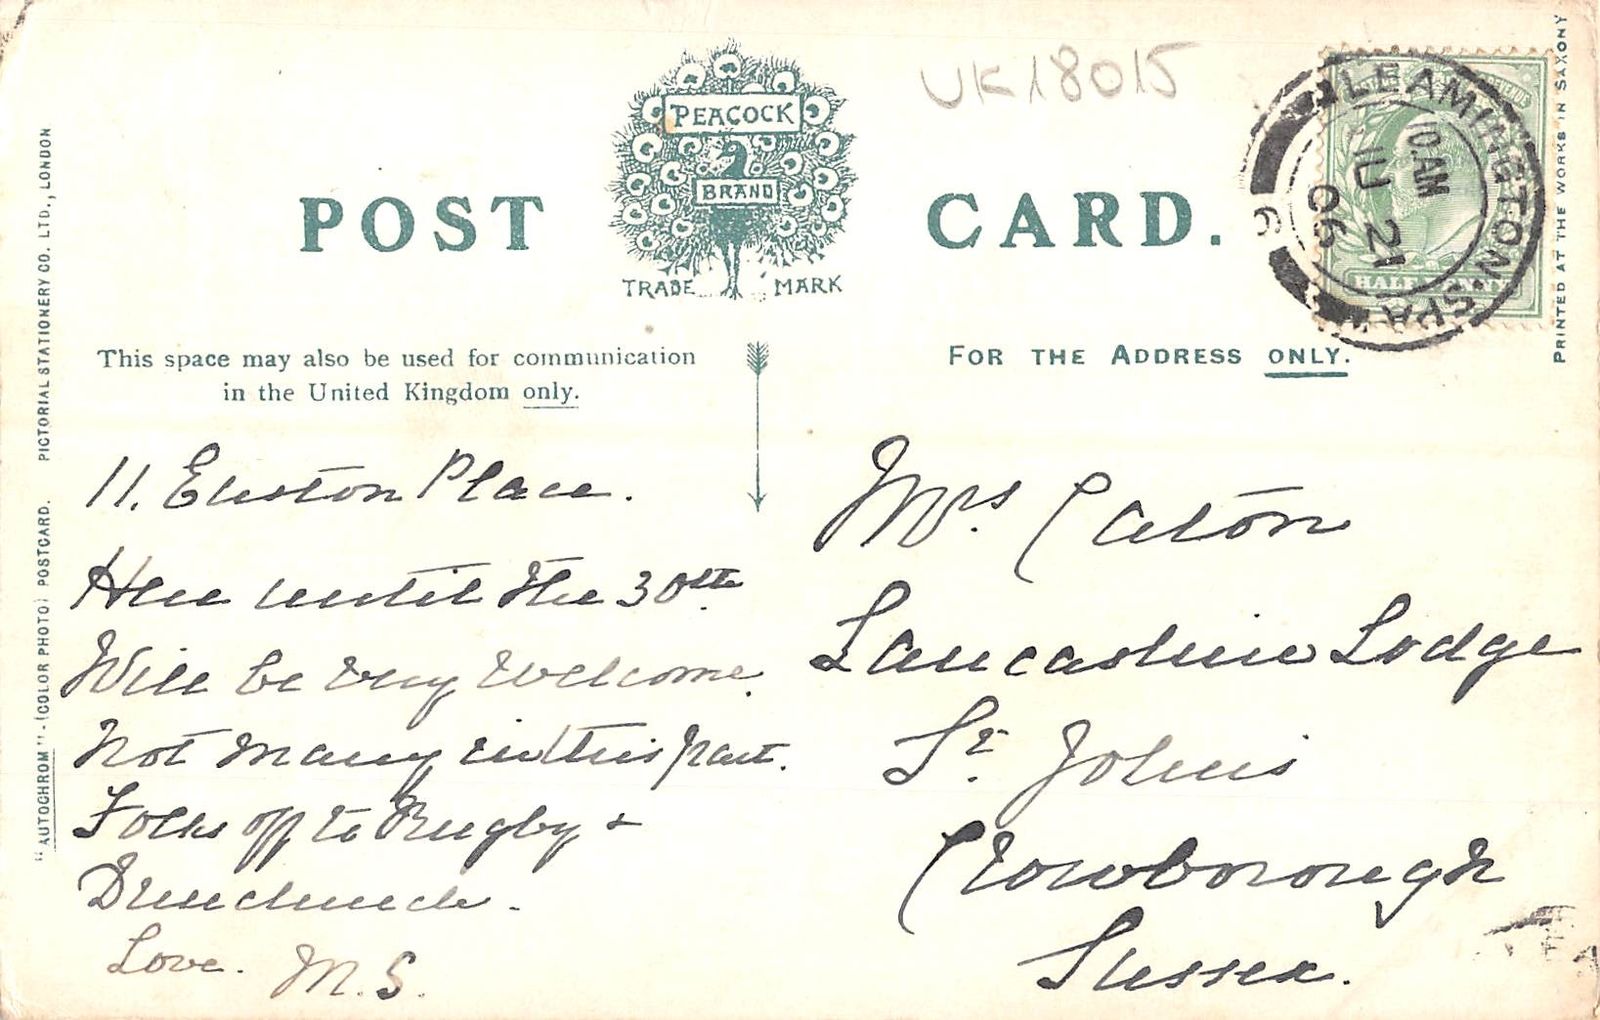 UK18015
POST CARD.
PEACOCK
BRAND
TRADE MARK
LEAMINGTON·SPA
10.AM
JU 21
06
9
HALFPENNY
PRINTED AT THE WORKS IN SAXONY
"AUTOCHROM" (COLOR PHOTO) POSTCARD. PICTORIAL STATIONERY CO. LTD., LONDON
This space may also be used for communication
in the United Kingdom only.
FOR THE ADDRESS ONLY.
11. Euston Place.
Here until the 30th.
Will be very welcome.
Not many in this part.
Folks off to Rugby &
Dunchurch.
Love. M.S.
Mrs. Caton
Lancashire Lodge
St. Johns
Crowborough
Sussex.